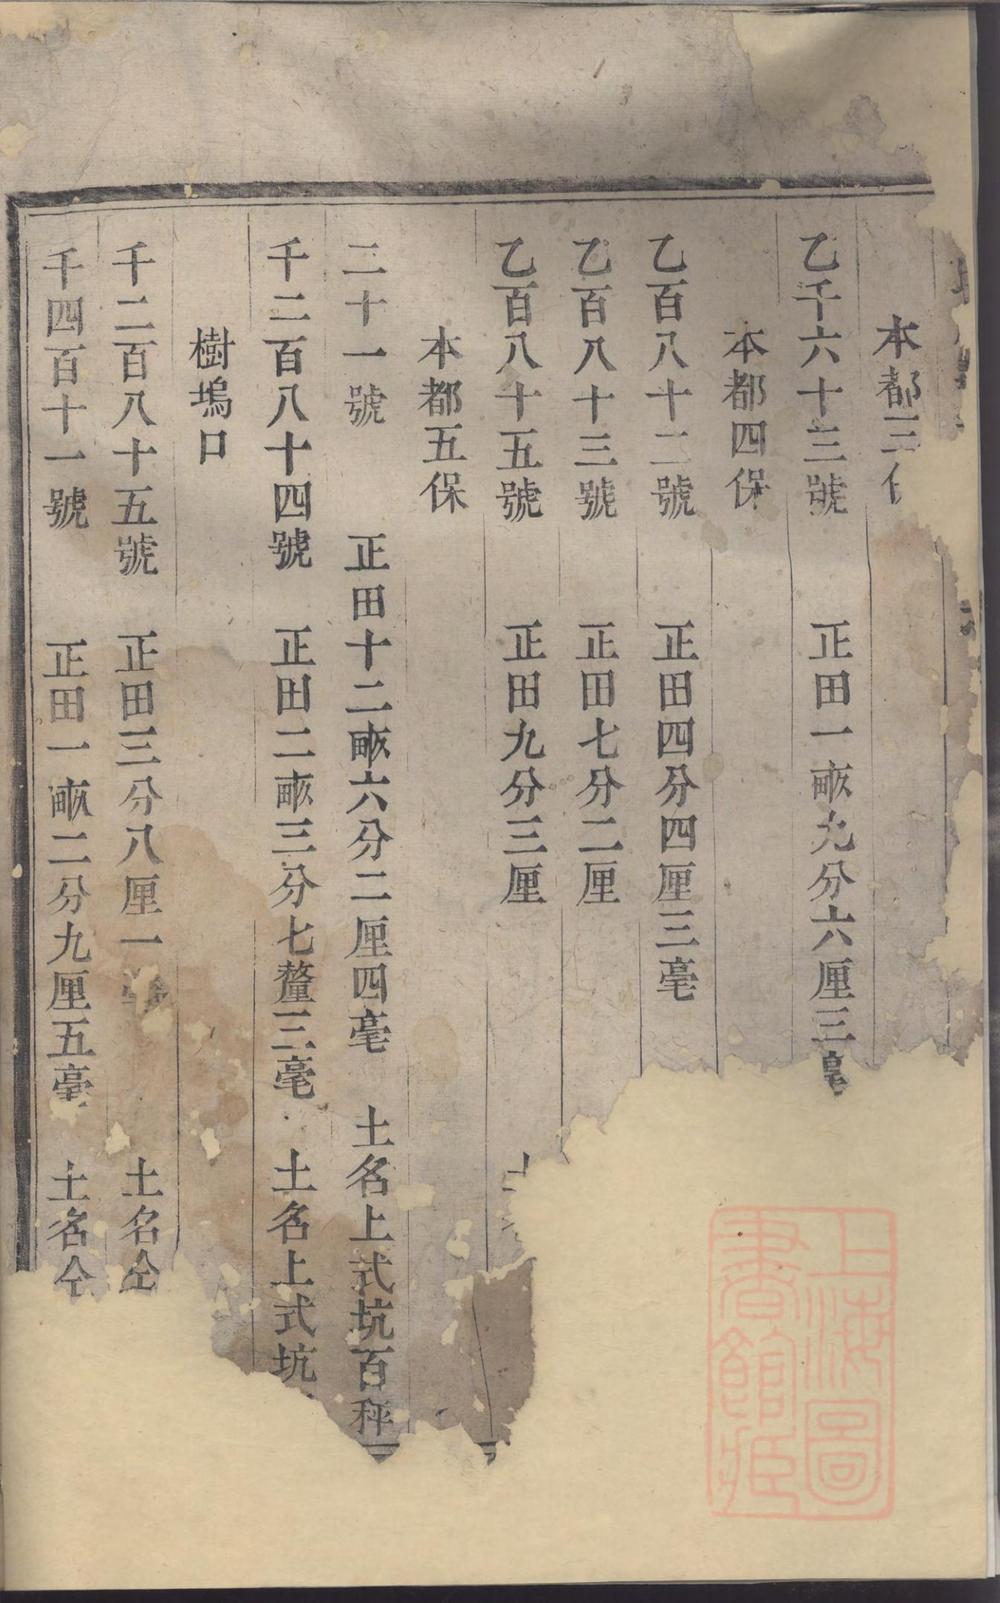 本都三
乙千六十三號 正田一畞九分六厘三毫
本都四保
乙百八十二號 正田四分四厘三毫
乙百八十三號 正田七分二厘
乙百八十五號 正田九分三厘
本都五保
二十一號 正田十二畞六分二厘四毫 土名上式坑百秤
千二百八十四號 正田二畞三分七釐三毫 土名上式坑
樹塢口
千二百八十五號 正田三分八厘一 土名仝
千四百十一號 正田一畞二分九厘五毫 土名仝
上海圖
書館藏